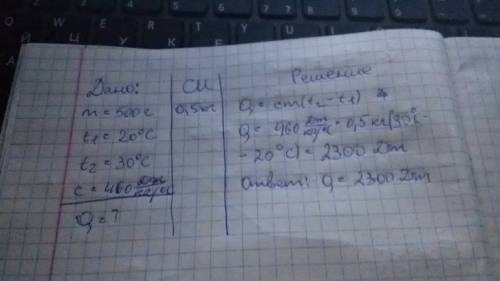 Дано:
m = 500г
t₁ = 20°C
t₂ = 30°C
c = 460 Дж/кг°C
Q = ?
СИ
0,5кг
Решение
Q = cm(t₂ - t₁)
Q = 460 Дж/кг°C · 0,5 кг(30°C -
- 20°C) = 2300 Дж
Ответ: Q = 2300 Дж